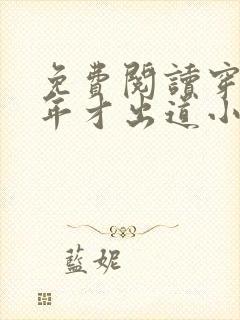 免費閱讀穿
年才出道小
藍妮